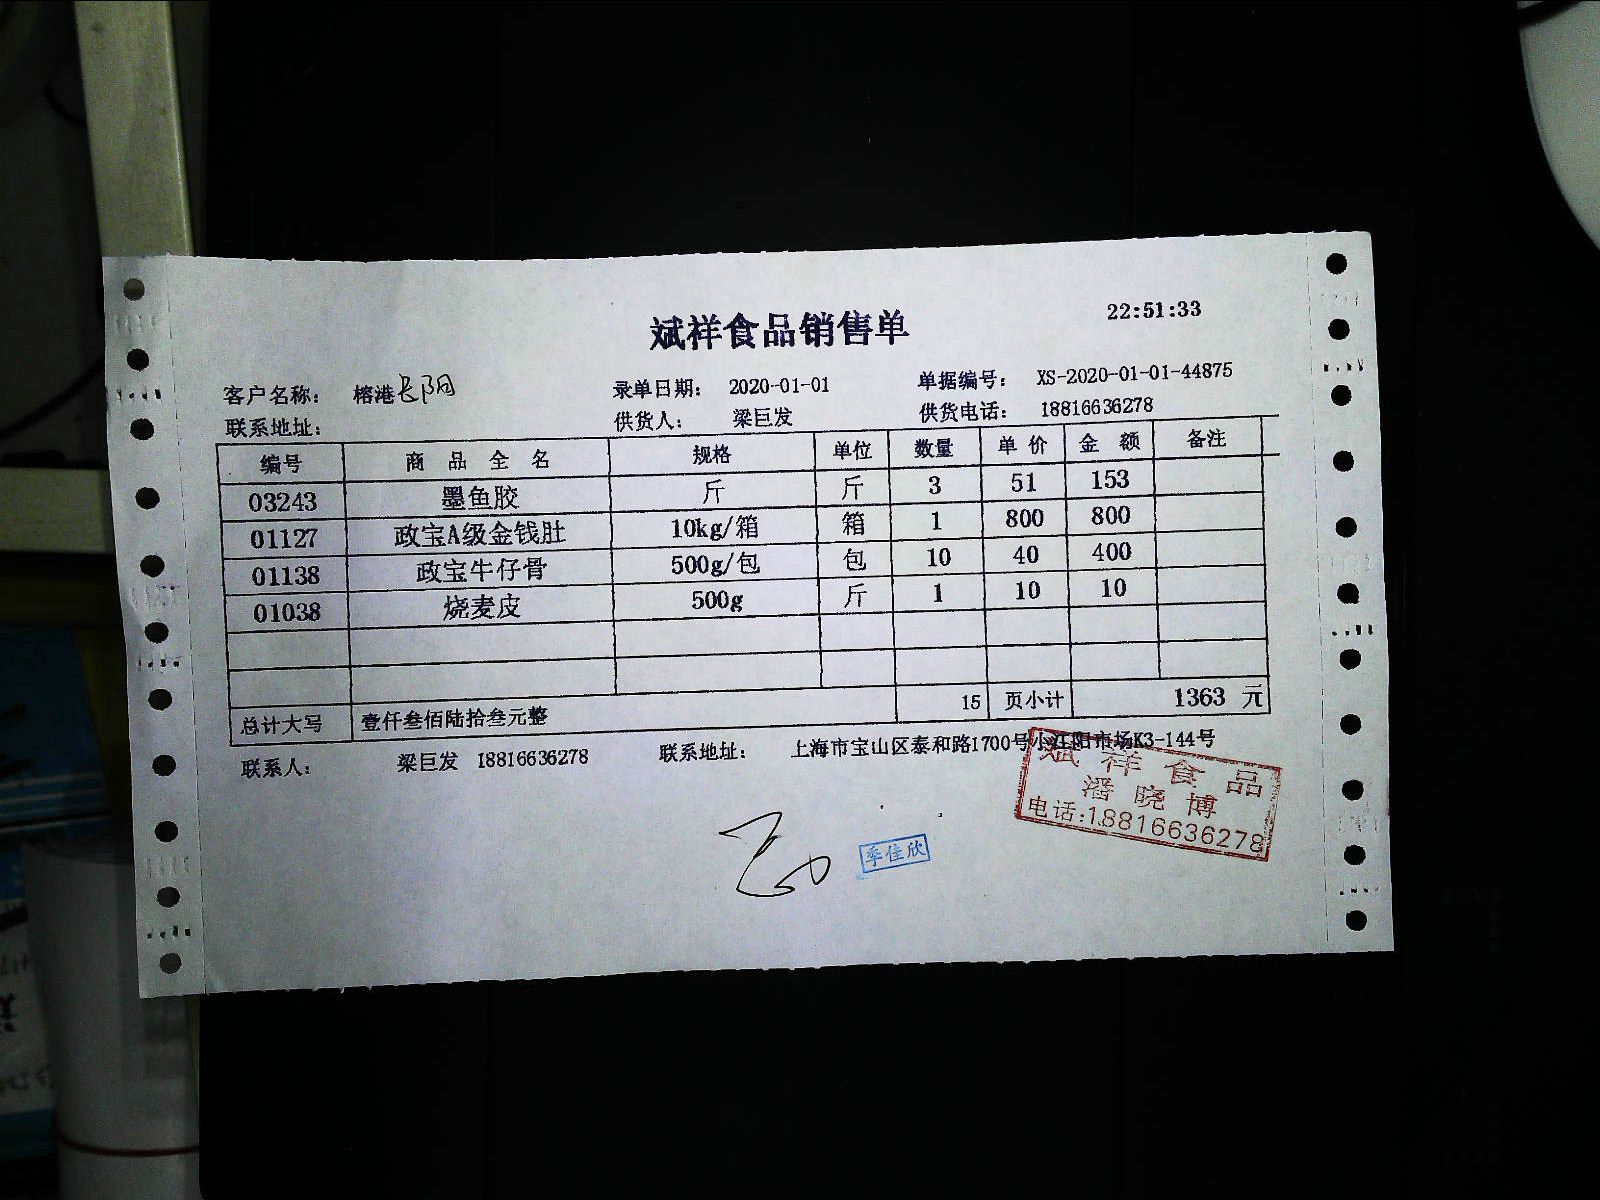 22:51:33
斌祥食品销售单
客户名称: 榕港长阳 录单日期: 2020-01-01 单据编号: XS-2020-01-01-44875
联系地址: 供货人: 梁巨发 供货电话: 18816636278
编号 商品全名 规格 单位 数量 单价 金额 备注
03243 墨鱼胶 斤 斤 3 51 153
01127 政宝A级金钱肚 10kg/箱 箱 1 800 800
01138 政宝牛仔骨 500g/包 包 10 40 400
01038 烧麦皮 500g 斤 1 10 10
总计大写 壹仟叁佰陆拾叁元整 15 页小计 1363 元
联系人: 梁巨发 18816636278 联系地址: 上海市宝山区泰和路1700号小江阳市场K3-144号
斌祥食品
潘晓博
电话:18816636278
季佳欣